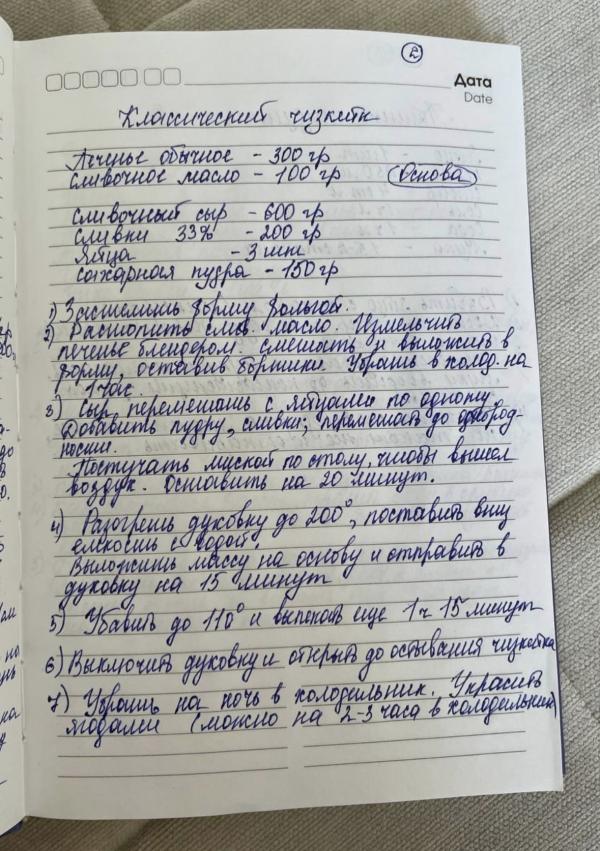 2
Дата
Date
Классический чизкейк
Печенье обычное - 300 гр
сливочное масло - 100 гр Основа
сливочный сыр - 600 гр
сливки 33% - 200 гр
яйца - 3 шт
сахарная пудра - 150 гр
1) Застелить форму фольгой.
2) Растопить слив. масло. Измельчить
печенье блендером. смешать и выложить в
форму, оставив бортики. Убрать в холод. на
1 час.
3) Сыр перемешать с яйцами по одному.
Добавить пудру, сливки; перемешать до однород-
ности.
Постучать миской по столу, чтобы вышел
воздух. Оставить на 20 минут.
4) Разогреть духовку до 200°, поставить вниз
емкость с водой.
Выложить массу на основу и отправить в
духовку на 15 минут
5) Убавить до 110° и выпекать еще 1 ч 15 минут
6) Выключить духовку и открыть до остывания чизкейка
7) Убрать на ночь в холодильник. Украсить
ягодами (можно на 2-3 часа в холодильник)